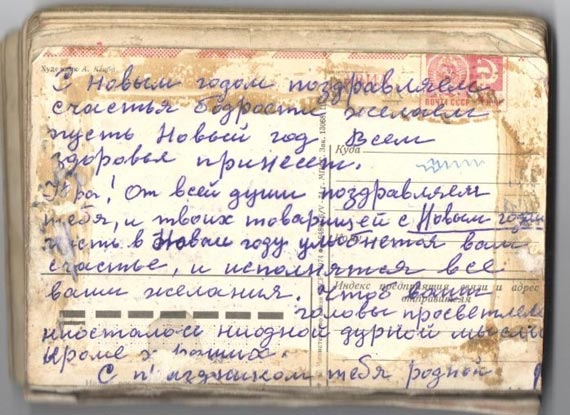 Художник А.
С Новым годом поздравляем
счастья бодрости желаем
пусть Новый год Всем
здоровья принесет.
ПОЧТА СССР
Куда
От всей души поздравляем
тебя, и твоих товарищей с Новым годом
пусть в Новом году улыбнется вам
счастье, и исполнятся все
ваши желания. Чтоб
Индекс предприятия связи и адрес
отправителя
головы просветлели
ниодной дурной мысли
кроме хороших.
С праздником тебя родной